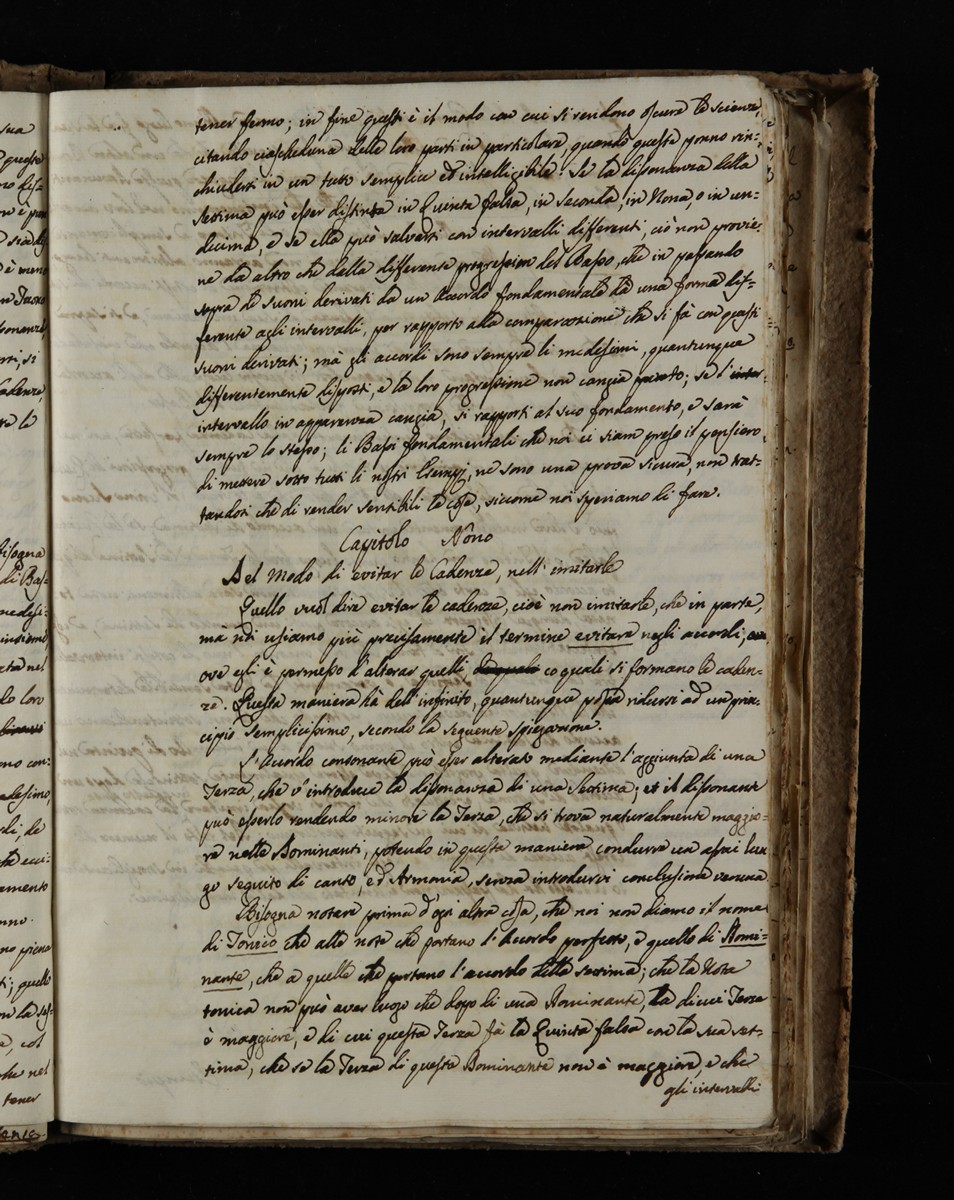 tener fermo; in fine questi è il modo con cui si rendono oscure le scienze,
citando ciascheduna delle loro parti in particolare, quando queste ponno rin-
chiudersi in un tutto semplice ed intelligibile. Se la dissonanza della
settima può esser distinta in Quinta falsa, in seconda, in Nona, o in un-
decima, e se ella può salvarsi con intervalli differenti, ciò non provie-
ne da altro che dalla differente progression del Basso, che in passando
sopra de suoni derivati da un Accordo fondamentale dà una forma dif-
ferente agli intervalli, per rapporto alla comparazione che si fà con questi
suoni derivati; mà gli accordi sono sempre li medesimi, quantunque
differentemente disposti, e la loro progressione non cangia punto; se l'inter-
intervallo in apparenza cangia, si rapporti al suo fondamento, e sarà
sempre lo stesso; li Bassi fondamentali che noi ci siam preso il pensiero
di mettere sotto tutti li nostri Esempj, ne sono una prova sicura, non trat-
tandosi che di render sensibili le cose, siccome noi speriamo di fare.
Capitolo Nono
Del Modo di evitar le Cadenze, nell' imitarle
Quello vuol dire evitar le cadenze, cioè non imitarle, che in parte,
mà noi usiamo più precisamente il termine evitare negli accordi;
ove egli è permesso d'alterar quelli, co quali si formano le caden-
ze. Questa maniera hà dell' infinito, quantunque possa ridursi ad un prin-
cipio semplicissimo, secondo la seguente spiegazione.
L'Accordo consonante può esser alterato mediante l'aggiunta di una
Terza, che v' introduce la dissonanza di una Settima; et il dissonante
può esserlo rendendo minore la Terza, che si trova naturalmente maggio-
re nelle Dominanti, potendo in questa maniera condurre un assai lun
go seguito di canto, ed Armonia, senza introdurvi conclusione veruna
Bisogna notare prima d'ogni altra cosa, che noi non diamo il nome
di Tonico che alle note che portano l'Accordo perfetto, e quello di Domi-
nante, che a quelle che portano l'accordo della settima; che la Nota
tonica non può aver luogo che dopo di una Dominante, la di cui Terza
è maggiore, e di cui questa Terza fà la Quinta falsa con la sua set-
tima, che se la Terza di questa Dominante non è maggiore, e che
gli intervalli